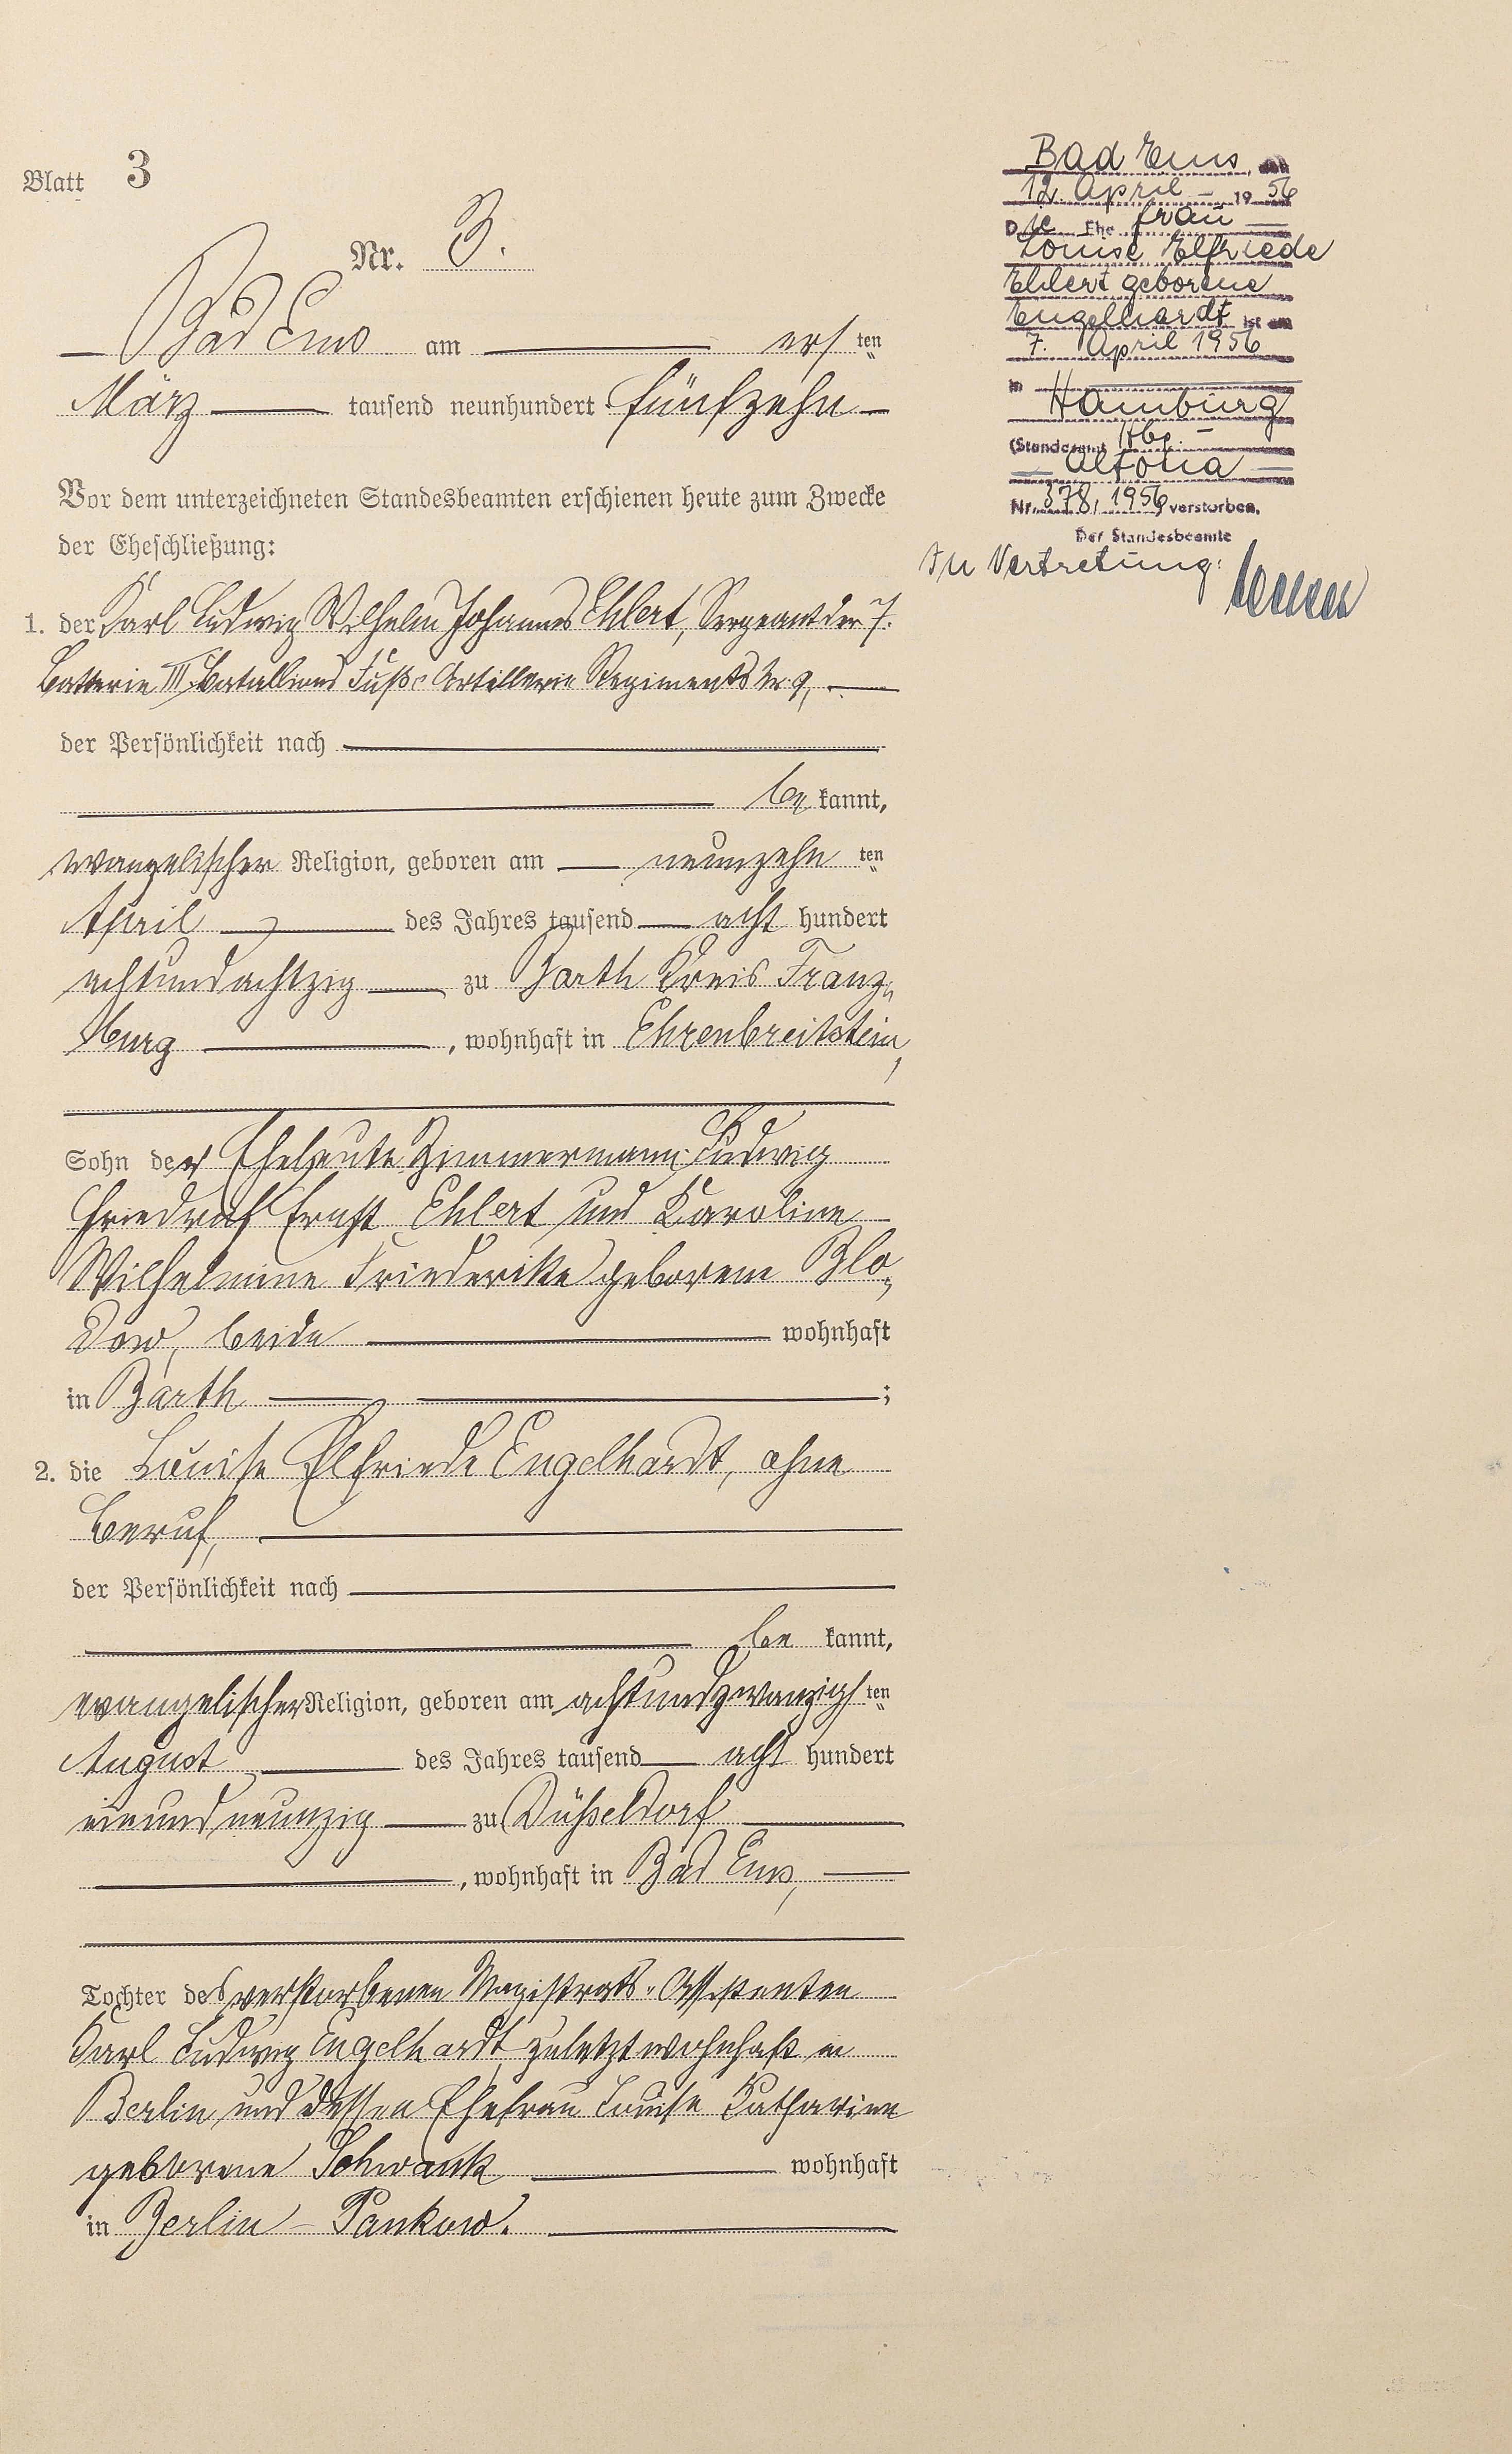 Blatt 3
Nr. 3.
Bad Ems am ersten
März tausend neunhundert fünfzehn
Vor dem unterzeichneten Standesbeamten erschienen heute zum Zwecke
der Eheschließung:
1. der Karl Ludwig Wilhelm Johannes Ehlert, Sergeant der 7.
Batterie III. Bataillons Fuß-Artillerie Regiments Nr. 9,
der Persönlichkeit nach
be kannt,
evangelischer Religion, geboren am neunzehn ten
April des Jahres tausend acht hundert
achtundachtzig zu Barth Kreis Franz-
burg, wohnhaft in Ehrenbreitstein,
Sohn der Eheleute Zimmermann Ludwig
Ernst Ehlert und Karoline
Wilhelmine Friederike geborene Blo-
dow, beide wohnhaft
in Barth ;
2. die Louise Elfriede Engelhardt, ohne
Beruf,
der Persönlichkeit nach
be kannt,
evangelischer Religion, geboren am achtundzwanzigs ten
August des Jahres tausend acht hundert
einundneunzig zu Düsseldorf
, wohnhaft in Bad Ems,
Tochter des verstorbenen Magistrats-Assistenten
Karl Ludwig Engelhardt zuletzt wohnhaft in
Berlin und dessen Ehefrau Louise Katharine
geborene Schwank wohnhaft
in Berlin-Pankow.
Bad Ems, den
12. April 19 56
Die Ehe frau
Louise Elfriede
Ehlert geborene
Engelhardt ist am
7. April 1956
in
Hamburg
(Standesamt Hbg.-
Altona
Nr. 378, 1956 verstorben.
Der Standesbeamte
In Vertretung: